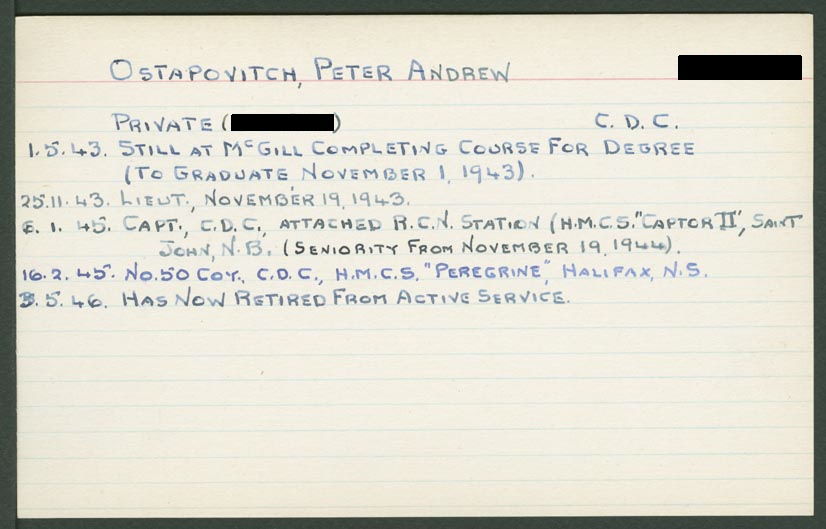 Ostapovitch, Peter Andrew
Private ( ) C. D. C.
1. 5. 43. Still at McGill Completing Course For Degree
(To Graduate November 1, 1943).
25.11.43. Lieut., November 19, 1943.
6. 1. 45. Capt., C.D.C., attached R.C.N. Station (H.M.C.S. "Captor II", Saint
John, N.B. (Seniority From November 19, 1944).
16.2.45. No. 50 Coy., C.D.C., H.M.C.S. "Peregrine", Halifax, N.S.
3. 5. 46. Has Now Retired From Active Service.